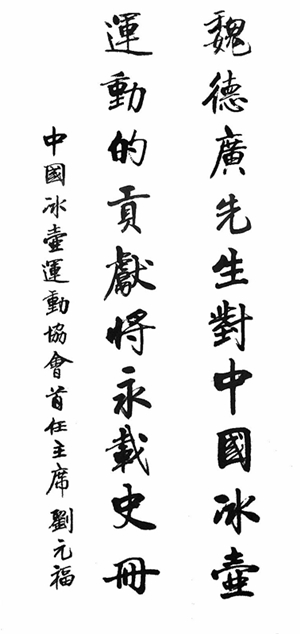 魏德廣先生對中國冰壺
運動的貢獻將永載史冊
中國冰壺運動協會首任主席劉元福